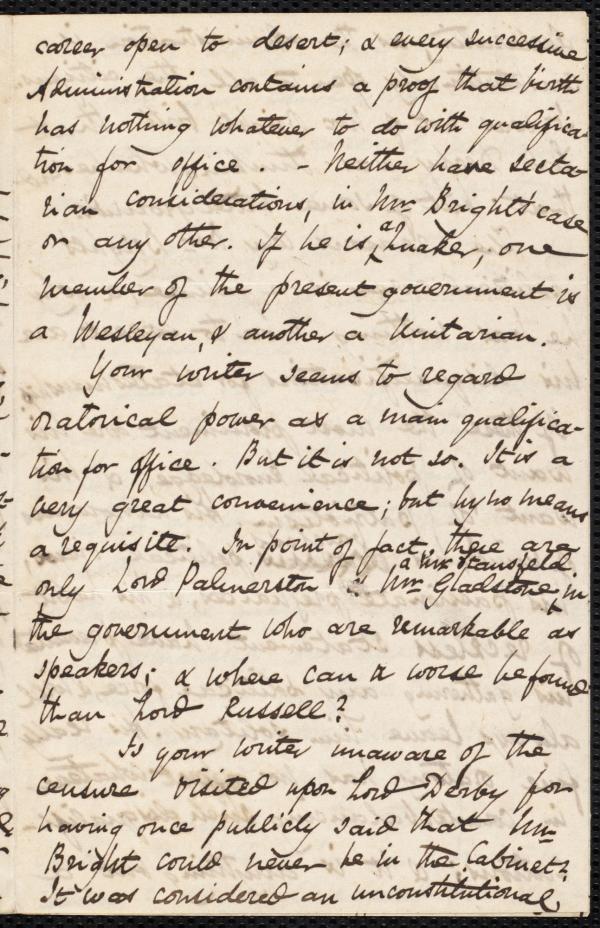 career open to desert; & every successive
Administration contains a proof that birth
has nothing whatever to do with qualifica-
tion for office. - Neither have secta-
rian considerations, in Mr Bright's case
or any other. If he is a Quaker, one
member of the present government is
a Wesleyan, & another a Unitarian.
Your writer seems to regard
oratorical power as a main qualifica-
tion for office. But it is not so. It is a
very great convenience; but by no means
a requisite. In point of fact, there are
only Lord Palmerston & Mr Gladstone & Mr Stansfeld in
the government who are remarkable as
speakers; & where can a worse be found
than Lord Russell?
Is your writer unaware of the
censure visited upon Lord Derby for
having once publicly said that Mr
Bright could never be in the Cabinet?
It was considered an unconstitutional